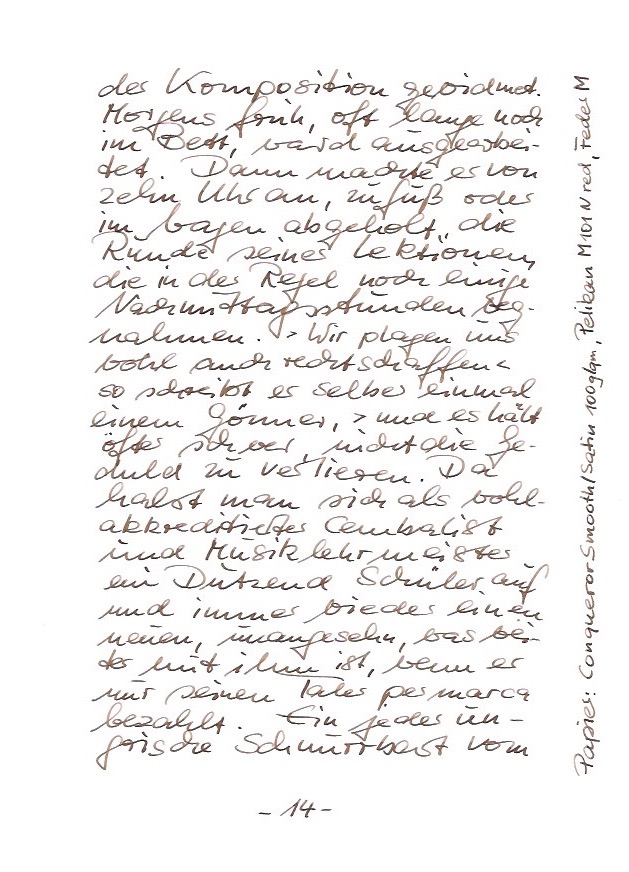 der Komposition gewidmet.
Morgens früh, oft lange noch
im Bett, ward ausgearbei-
tet. Dann machte er von
zehn Uhr an, zu fuß oder
im wagen abgeholt, die
Runde seiner Lektionen,
die in der Regel noch einige
Nachmittagsstunden weg-
nahmen. >Wir plagen uns
wohl auch rechtschaffen<
so schreibt er selber einmal
einem Gönner, >und es hält
öfter schwer, nicht die Ge-
duld zu verlieren. Da
halst man sich als wohl-
akkreditierter Cembalist
und Musiklehrmeister
ein Dutzend Schüler auf
und immer wieder einen
neuen, unangesehn, was wei-
ter mit ihm ist, wenn er
nur seinen Taler per marca
bezahlt. Ein jeder un-
grische Schnurrbart vom
- 14 -
Papier: Conqueror Smooth/Satin 100g/qm, Pelikan M101N red, Feder M